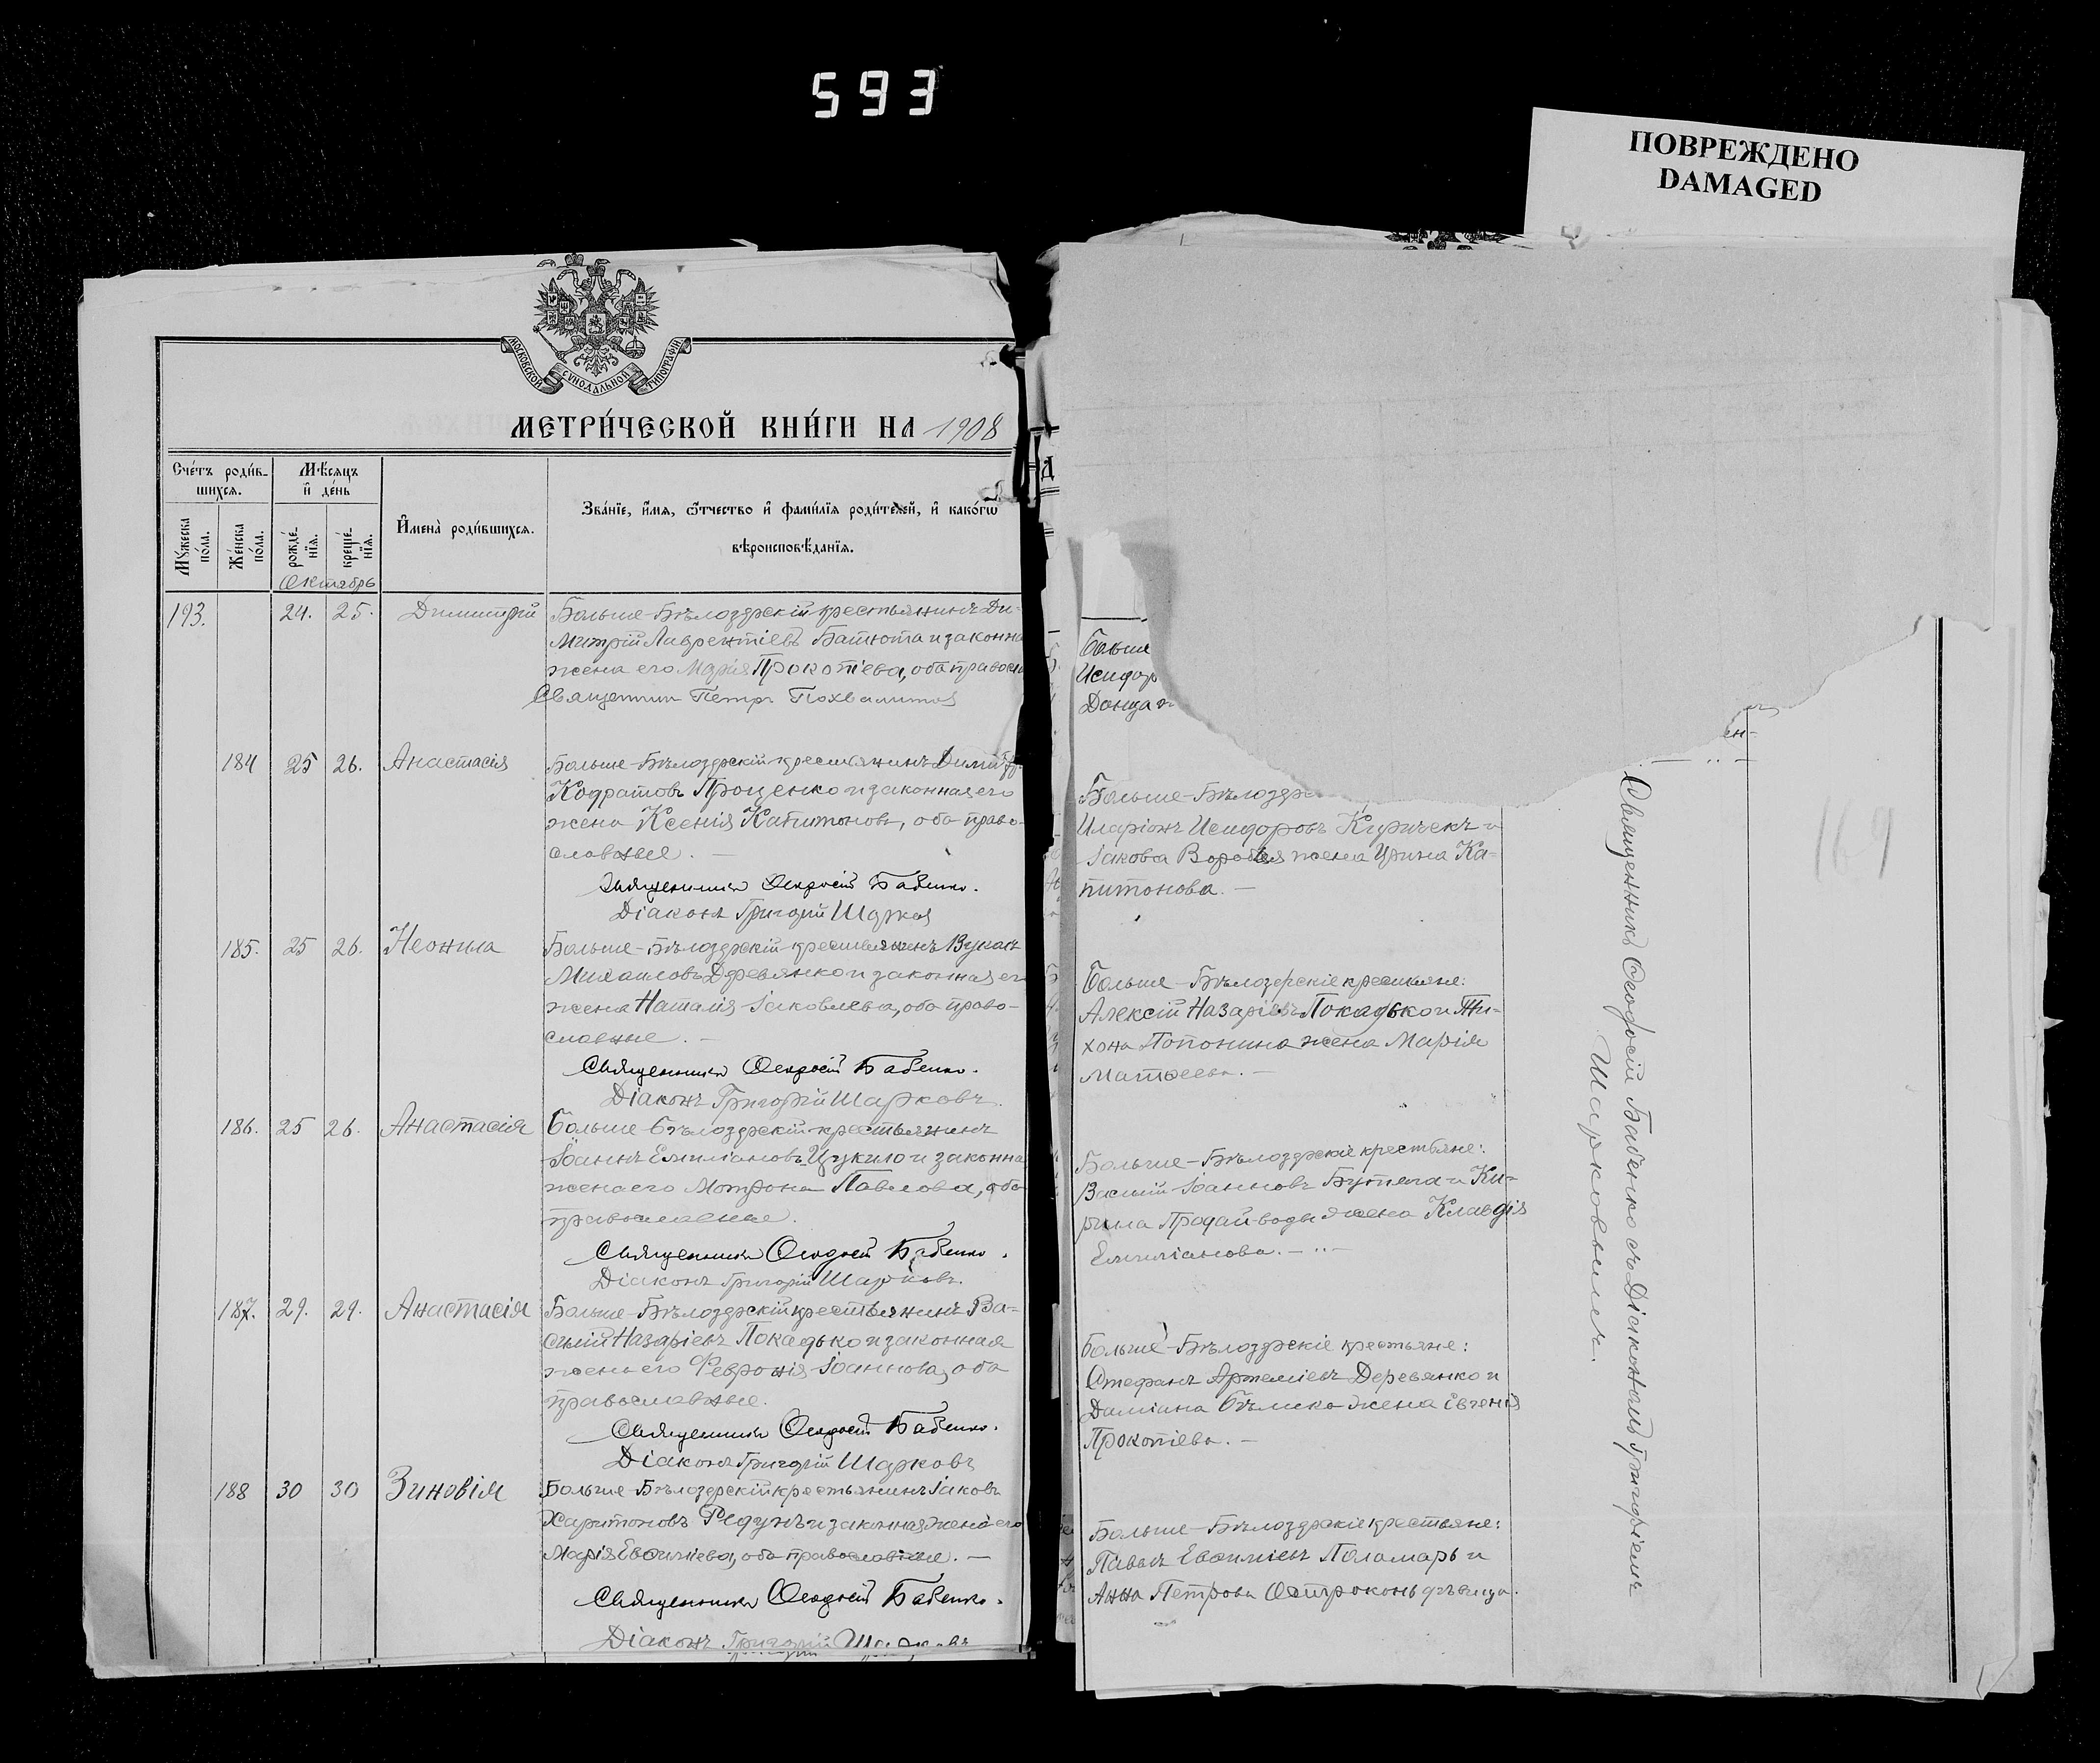 593
ПОВРЕЖДЕНО
DAMAGED
МОСКОВСКОЙ СУНОДАЛЬНОЙ ТИПОГРАФІИ
МЕТРИ́ЧЕСКОЙ КНИ́ГИ НА 1908
Сче́тъ роди́в-
шихся.
Мѣ́сяцъ
и҆ де́нь
Му́жеска
по́ла.
Же́нска
по́ла.
рожде́-
нїя.
креще́-
нїя.
И҆мена̀ роди́вшихся.
Зва́нїе, и҆́мя, ѻ҆́тчество и҆ фами́лїя роди́телей, и҆ како́гѡ
вѣроисповѣ́данїя.
Октябрь
193. 24. 25. Димитрій Больше-Бѣлозерскій крестьянинъ Ди-
митрій Лаврентіевъ Батюта и законна
жена его Марія Прокопіева, оба правосл
Священник Петръ Похвалитов
184 25 26. Анастасія Больше-Бѣлозерскій крестьянинъ Димитр
Кодратовъ Проценко и законная его
жена Ксенія Капитонова, оба право-
славные. —
Священникъ Ѳеодосій Бабенко.
Діаконъ Григорій Шарков
185. 25 26. Неонила Больше-Бѣлозерскій крестьянинъ Вуколъ
Михаиловъ Деревянко и законная ег
жена Наталія Іаковлева, оба право-
славные. —
Священникъ Ѳеодосій Бабенко.
Діаконъ Григорій Шарковъ.
186. 25 26. Анастасія Больше-Бѣлозерскій крестьянинъ
Іоаннъ Емиліановъ Цукило и законна
жена его Мотрона Павлова, оба
православные.
Священникъ Ѳеодосій Бабенко.
Діаконъ Григорій Шарковъ.
187. 29. 29. Анастасія Больше-Бѣлозерскій крестьянинъ Ва-
силій Назаріевъ Покадько и законная
жена его Февронія Іоаннова, оба
православные.
Священникъ Ѳеодосій Бабенко.
Діаконъ Григорій Шарковъ
188 30 30 Зиновія Больше-Бѣлозерскій крестьянинъ Іаковъ
Харитоновъ Редунъ и законная жена его
Марія Евѳиміева, оба православные. —
Священникъ Ѳеодосій Бабенко.
Діаконъ Григорій Шарковъ
Больше
Исидор
Донца ж
Больше-Бѣлозерс
Иларіонъ Исидоровъ Киричекъ и
Іакова Воробья жена Ирина Ка-
питонова. —
Больше-Бѣлозерскіе крестьяне:
Алексій Назаріевъ Покадько и Ти-
хона Попонина жена Марія
Матѳеева. —
Больше-Бѣлозерскіе крестьяне:
Василій Іоанновъ Бутела и Ки-
рила Продай-воды жена Клавдія
Емиліанова. —
Больше-Бѣлозерскіе крестьяне:
Стефанъ Артеміевъ Деревянко и
Даміана Бѣлика жена Евгенія
Прокопіева. —
Больше-Бѣлозерскіе крестьяне:
Павелъ Евѳиміевъ Поламарь и
Анна Петрова Остроконь дѣвица.
Священникъ Ѳеодосій Бабенко съ Діакономъ Григоріемъ
Шарковымъ.
169